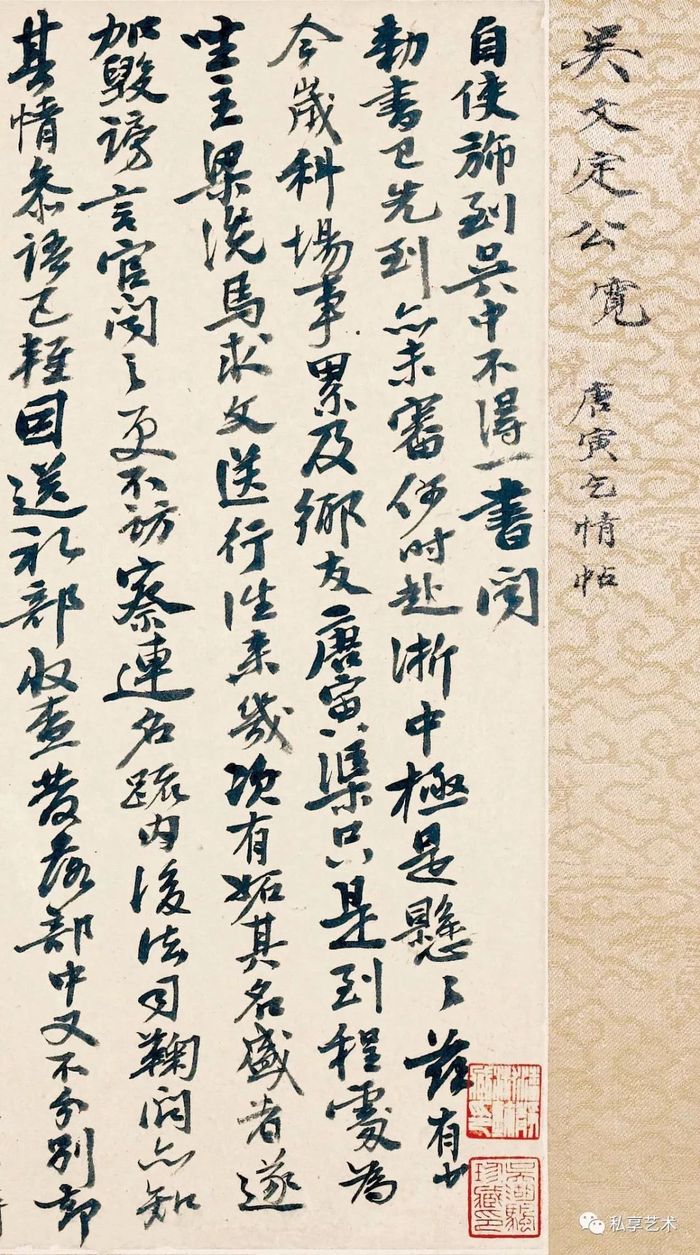 吳文定公寬
唐寅乞情帖
自使旆到吳中不得一書聞
勅書已先到亦未審何時赴浙中極是懸〻茲有少
今歲科場事累及鄉友唐寅渠只是到程處為
坐主梁洗馬求文送行往来幾次有妬其名盛者遂
加毀謗言官聞之更不訪察連名疏内後法司鞫問亦知
其情参語已輕因送礼部收查發落部中又不分別却
私享艺术